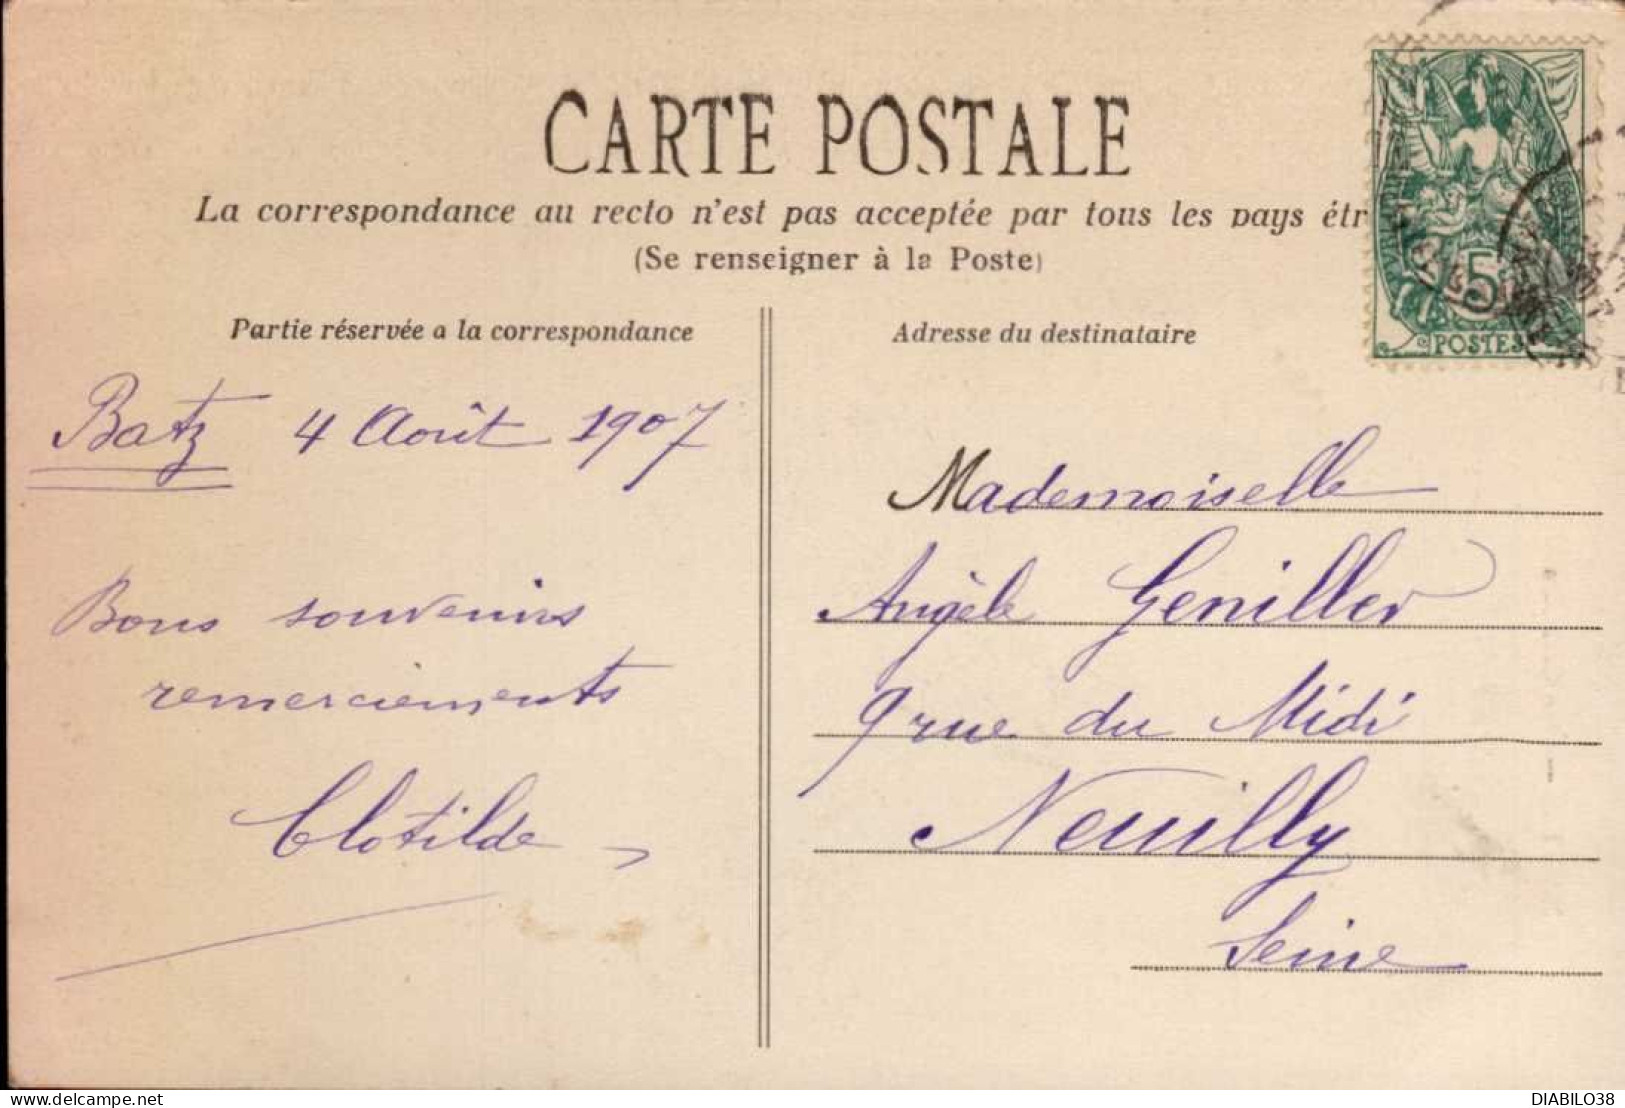 CARTE POSTALE
La correspondance au recto n'est pas acceptée par tous les pays étr
(Se renseigner à la Poste)
Partie réservée a la correspondance
Batz 4 Août 1907
Bons souvenirs
remerciements
Clotilde
Adresse du destinataire
Mademoiselle
Angèle Geniller
9 rue du Midi
Neuilly
Seine
5
POSTES
https://www.delcampe.net
DIABILO38